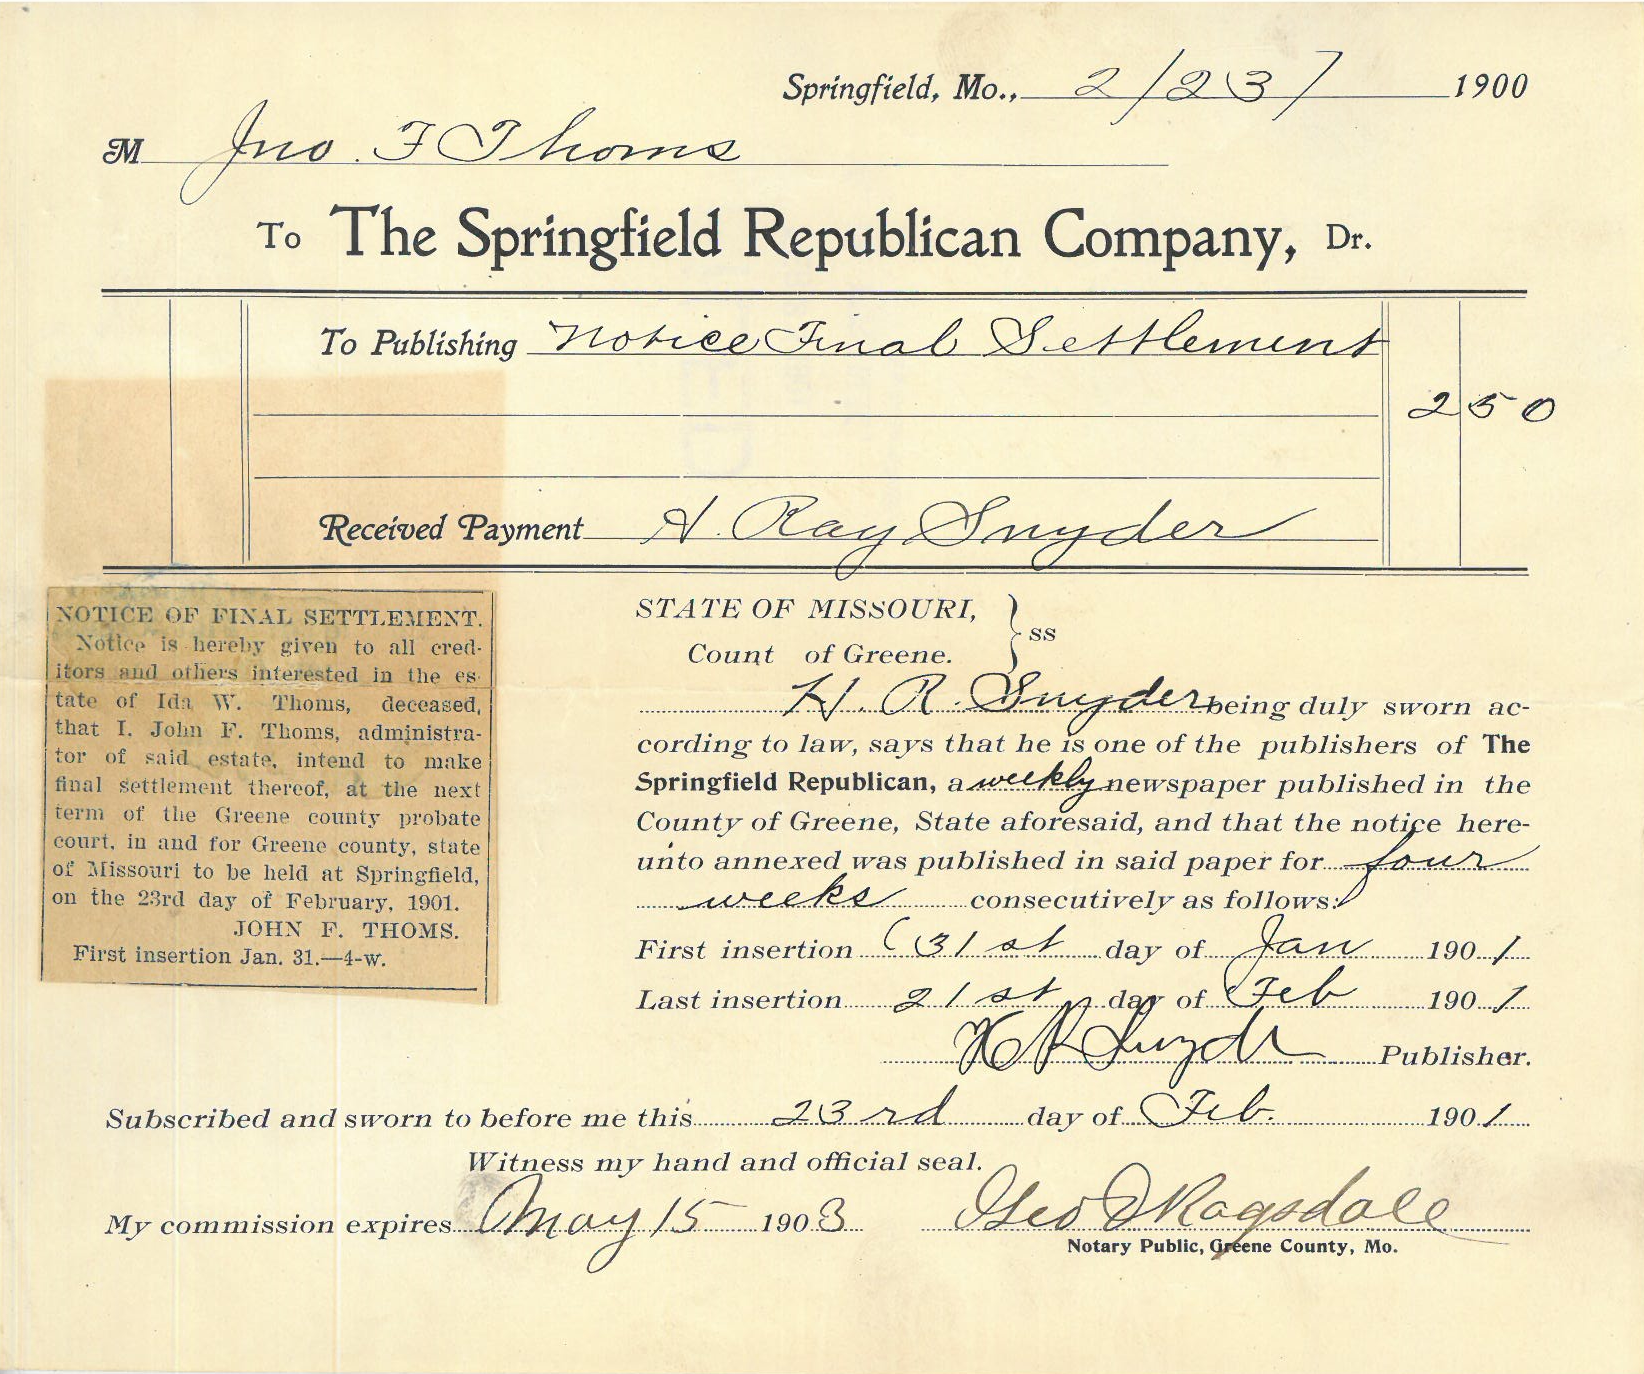 Springfield, Mo., 2/23/ 1900
M Jno. F Thoms
To The Springfield Republican Company, Dr.
To Publishing Notice Final Settlement
2 50
Received Payment H. Ray Snyder
NOTICE OF FINAL SETTLEMENT.
Notice is hereby given to all cred-
itors and others interested in the es-
tate of Ida W. Thoms, deceased,
that I, John F. Thoms, administra-
tor of said estate, intend to make
final settlement thereof, at the next
term of the Greene county probate
court, in and for Greene county, state
of Missouri to be held at Springfield,
on the 23rd day of February, 1901.
JOHN F. THOMS.
First insertion Jan. 31.—4-w.
STATE OF MISSOURI,
Count of Greene. } ss
H. R. Snyder being duly sworn ac-
cording to law, says that he is one of the publishers of The
Springfield Republican, a weekly newspaper published in the
County of Greene, State aforesaid, and that the notice here-
unto annexed was published in said paper for four
weeks consecutively as follows:
First insertion 31st day of Jan 1901
Last insertion 21st day of Feb 1901
H R Snyder Publisher.
Subscribed and sworn to before me this 23rd day of Feb. 1901
Witness my hand and official seal.
My commission expires May 15 1903 Geo D Ragsdale
Notary Public, Greene County, Mo.